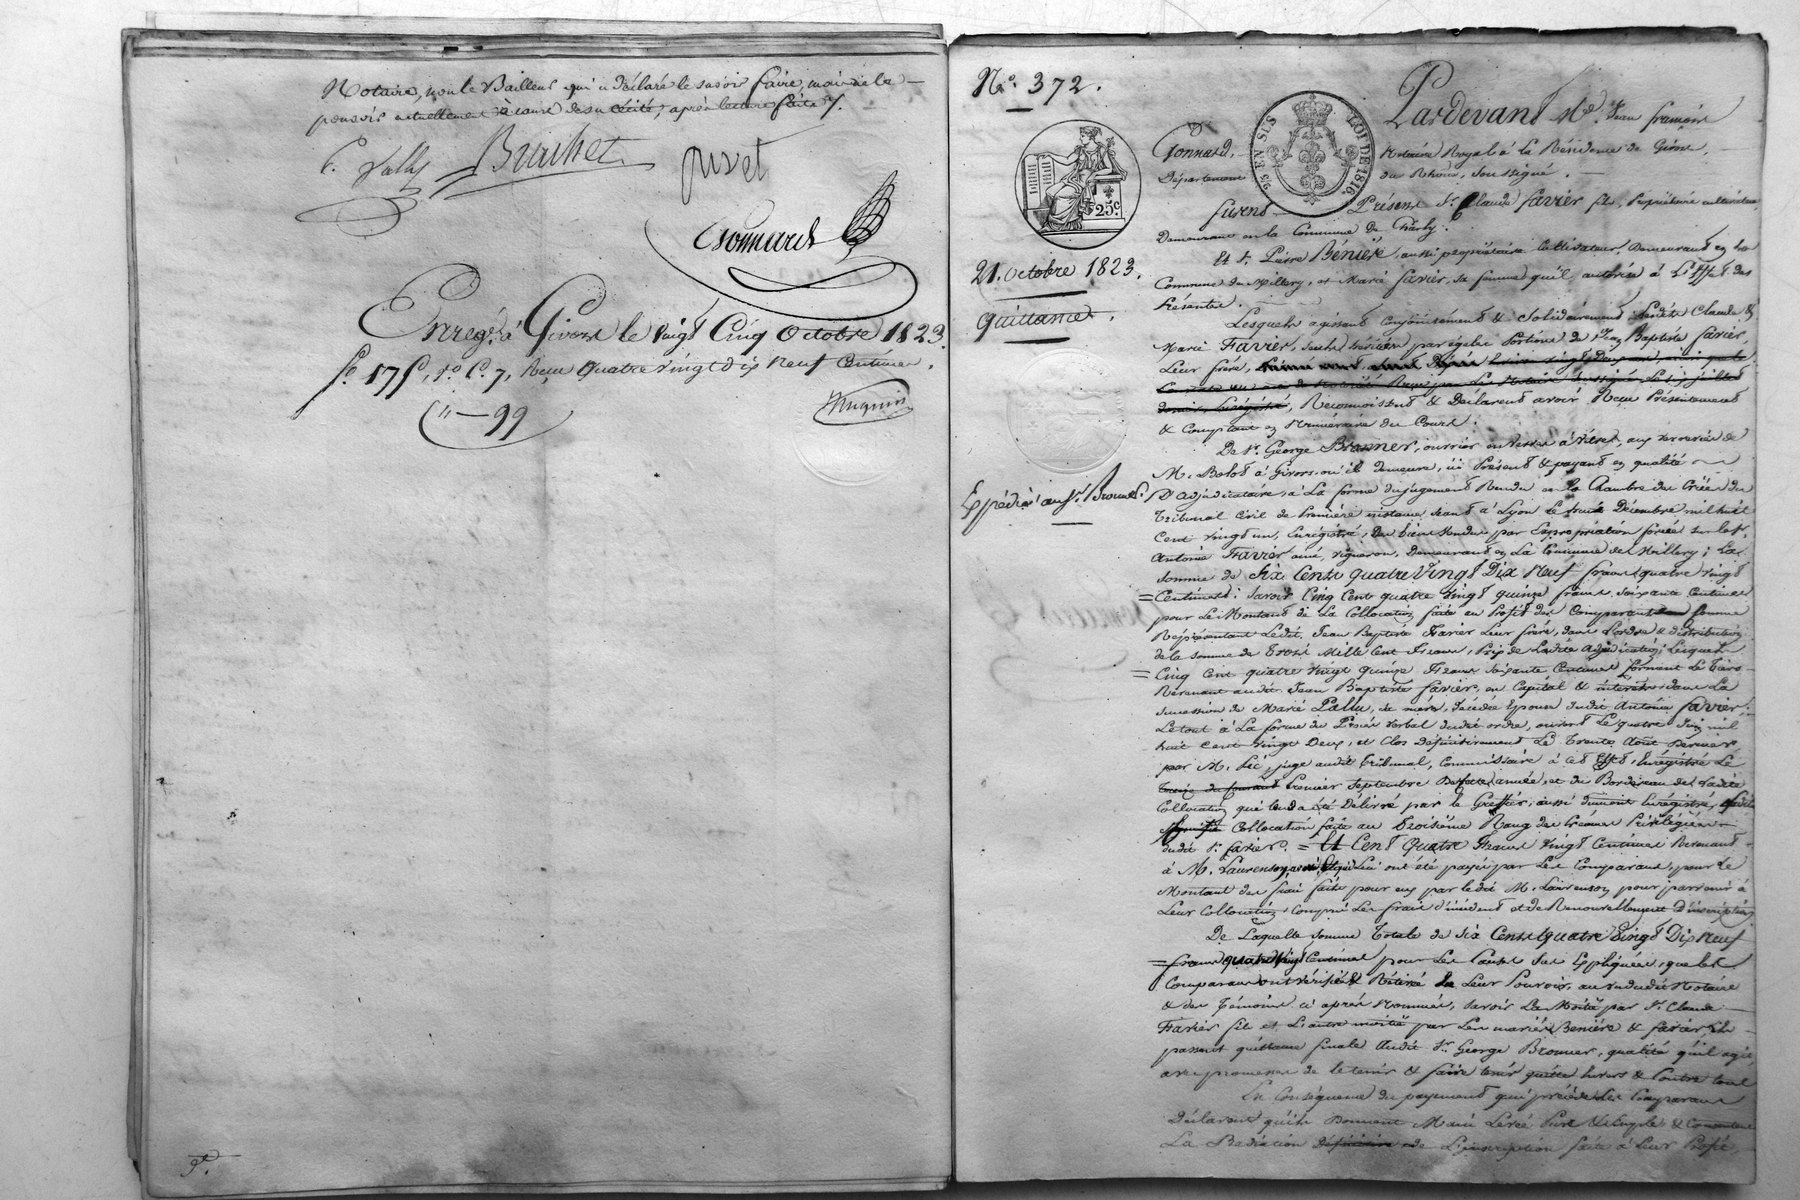 Notaire, non le Bailleur qui a déclaré le savoir faire, mais ne le
pouvoir actuellement à cause de sa cécité, après lecture faite.
Brachet
pivet
Gonnard
Enregé. à Givors le vingt Cinq Octobre 1823.
fo. 175, ro. C. 7, Reçu quatre vingt Dix Neuf Centimes.
"—99
Hugnin
No. 372.
25c.
EN SUS
LOI DE 1816
21. octobre 1823.
Quittance.
Expédié au sr. Bronner.
Pardevant Me. Jean françois
Gonnard, Notaire Royal à la Résidence de Givors,
Département du Rhône, soussigné.
furent Présens sr. Claude favier fils, Propriétaire cultivateur,
Demeurant en la Commune de Charly.
Et sr. Pierre Bénière, aussi propriétaire Cultivateur, Demeurant en la
Commune de Millery, et Marie favier, sa femme qu'il autorise à L'Effet des
Présentes.
Lesquels agissant Conjointement & Solidairement, lesdits Claude &
Marie Favier, seuls héritiers par égales Portions de Jean Baptiste favier,
Leur frère,
Reconnoissent & Déclarent avoir Reçu Présentement
& Comptant en Numéraire du Cours.
De sr. George Bronner, ouvrier en verres à vitres, aux verreries de
M. Bolot à Givors, où il demeure, ici Présent & payant en qualité
D'adjudicataire, à La forme du jugement Rendu en la Chambre des Criées du
Tribunal Civil de Première instance séant à Lyon Le trente Décembre mil huit
Cent vingt un, Enregistré, Des biens Vendus par Expropriation forcée sur le sr.
Antoine Favier ainé, vigneron, Demeurant en La Commune de Millery; La
Somme de Six Cents quatre Vingt Dix Neuf francs quatre vingt
Centimes: Savoir Cinq Cent quatre vingt quinze francs, soixante Centimes
pour Le Montant de La Collocation faite au Profit des Comparants Comme
Représentant Ledit Jean Baptiste Favier Leur frère, dans l'ordre & distribution
de la somme de Trois Mille Cent Francs, Prix de Ladite adjudication; Lesquels
Cinq Cent quatre vingt quinze Francs Soixante Centimes forment Le Tiers
Revenant audit Jean Baptiste favier, en Capital & intérêts dans La
succession de Marie Pallu, sa mère, décédée Epouse dudit Antoine favier;
Le tout à La forme du Procès verbal dudit ordre, ouvert Le quatre Juin mil
huit cent vingt Deux, et Clos définitivement Le Trente Août Dernier
par M. Juge audit Tribunal, Commissaire à cet Effet, Enregistré Le
Premier Septembre De cette année, et du Bordereau de Ladite
Collocation qui leur a été Délivré par le Greffier, aussi dument Enregistré,
Collocation faite au Troisième Rang des Créances Privilégiées
dudit sr. favier. = Et Cent Quatre Francs Vingt Centimes Revenant
à M. Laurenson, avoué qui Lui ont été payés par Les Comparants, pour Le
Montant des frais faits pour eux par ledit M. Laurenson pour parvenir à
Leur Collocation, Compris Les frais d'incident et de Renouvellement d'inscription
De Laquelle Somme Totale de Six Cents Quatre Vingt Dix Neuf
francs quatre Vingt Centimes pour Les Causes sus Expliquées, que les
Comparants ont vérifiée & Retirée en Leur Pouvoir, au vu dudit Notaire
& des Témoins ci après Nommés, savoir La Moitié par sr. Claude
Favier fils et L'autre moitié par Les mariés Benière & favier, ils
passent quittance finale Audit sr. George Bronner, qualité qu'il agit,
avec promesse de le tenir & faire tenir quitte envers & Contre tous
En Conséquence du payement qui précède Les Comparants
Déclarent qu'ils Donnent Main Levée Pure & Simple & Consentent
La Radiation définitive de L'inscription faite à Leur Profit,